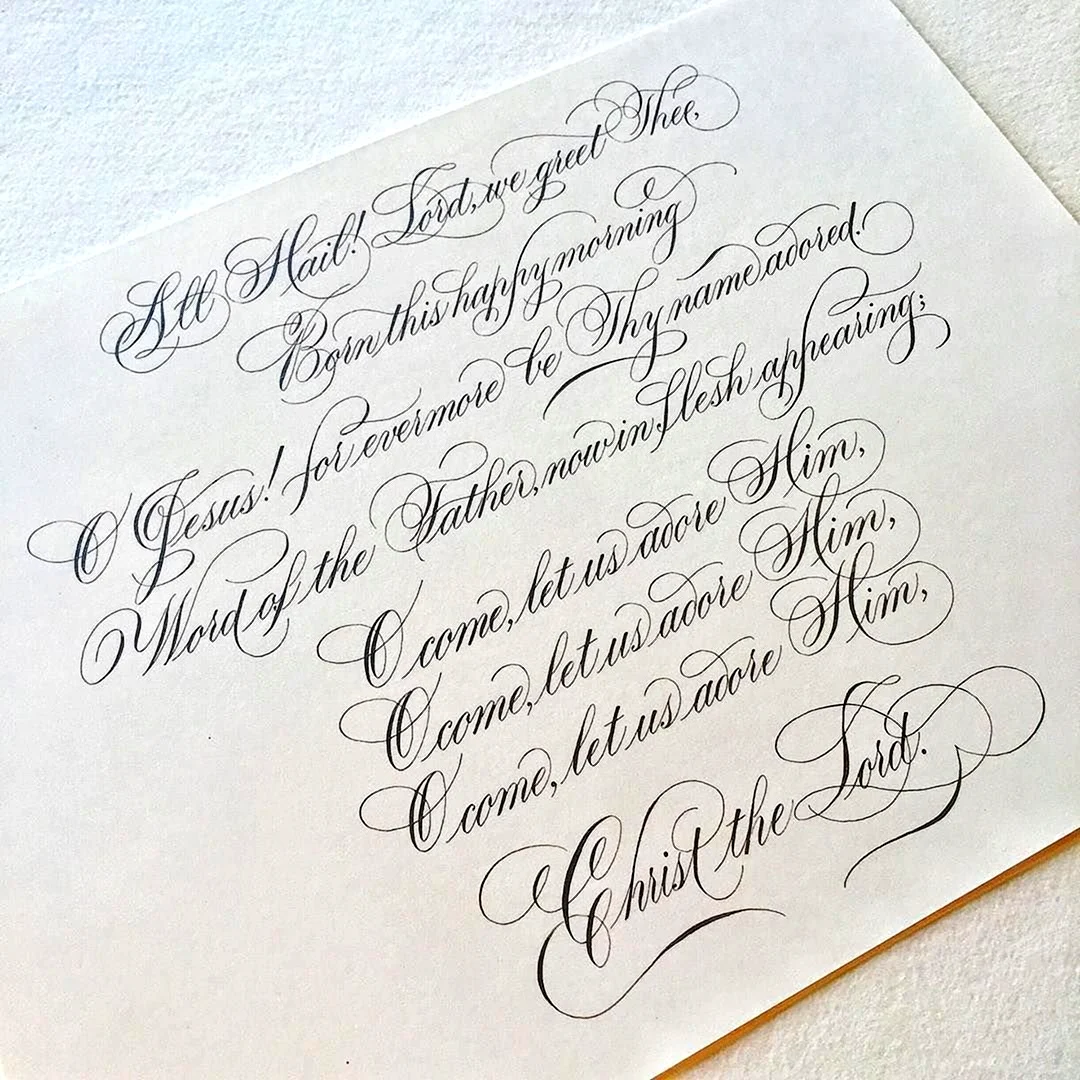 All Hail! Lord, we greet Thee,
Born this happy morning
O Jesus! for evermore be Thy name adored!
Word of the Father, now in flesh appearing;
O come, let us adore Him,
O come, let us adore Him,
O come, let us adore Him,
Christ the Lord.